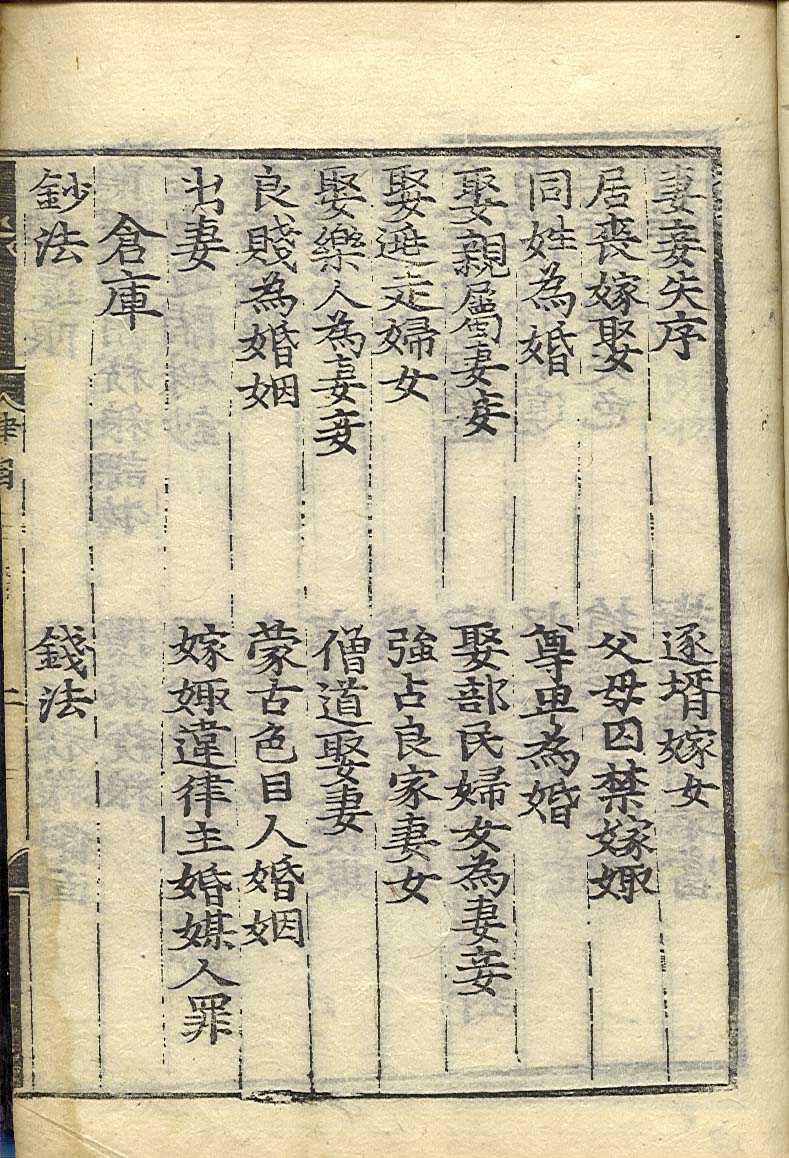 妻妾失序 逐壻嫁女
居喪嫁娶 父母囚禁嫁娵
同姓為婚 尊卑為婚
娶親屬妻妾 娶部民婦女為妻妾
娶逃走婦女 強占良家妻女
娶樂人為妻妾 僧道娶妻
良賤為婚姻 蒙古色目人婚姻
出妻 嫁娵違律主婚媒人罪
倉庫
鈔法 錢法